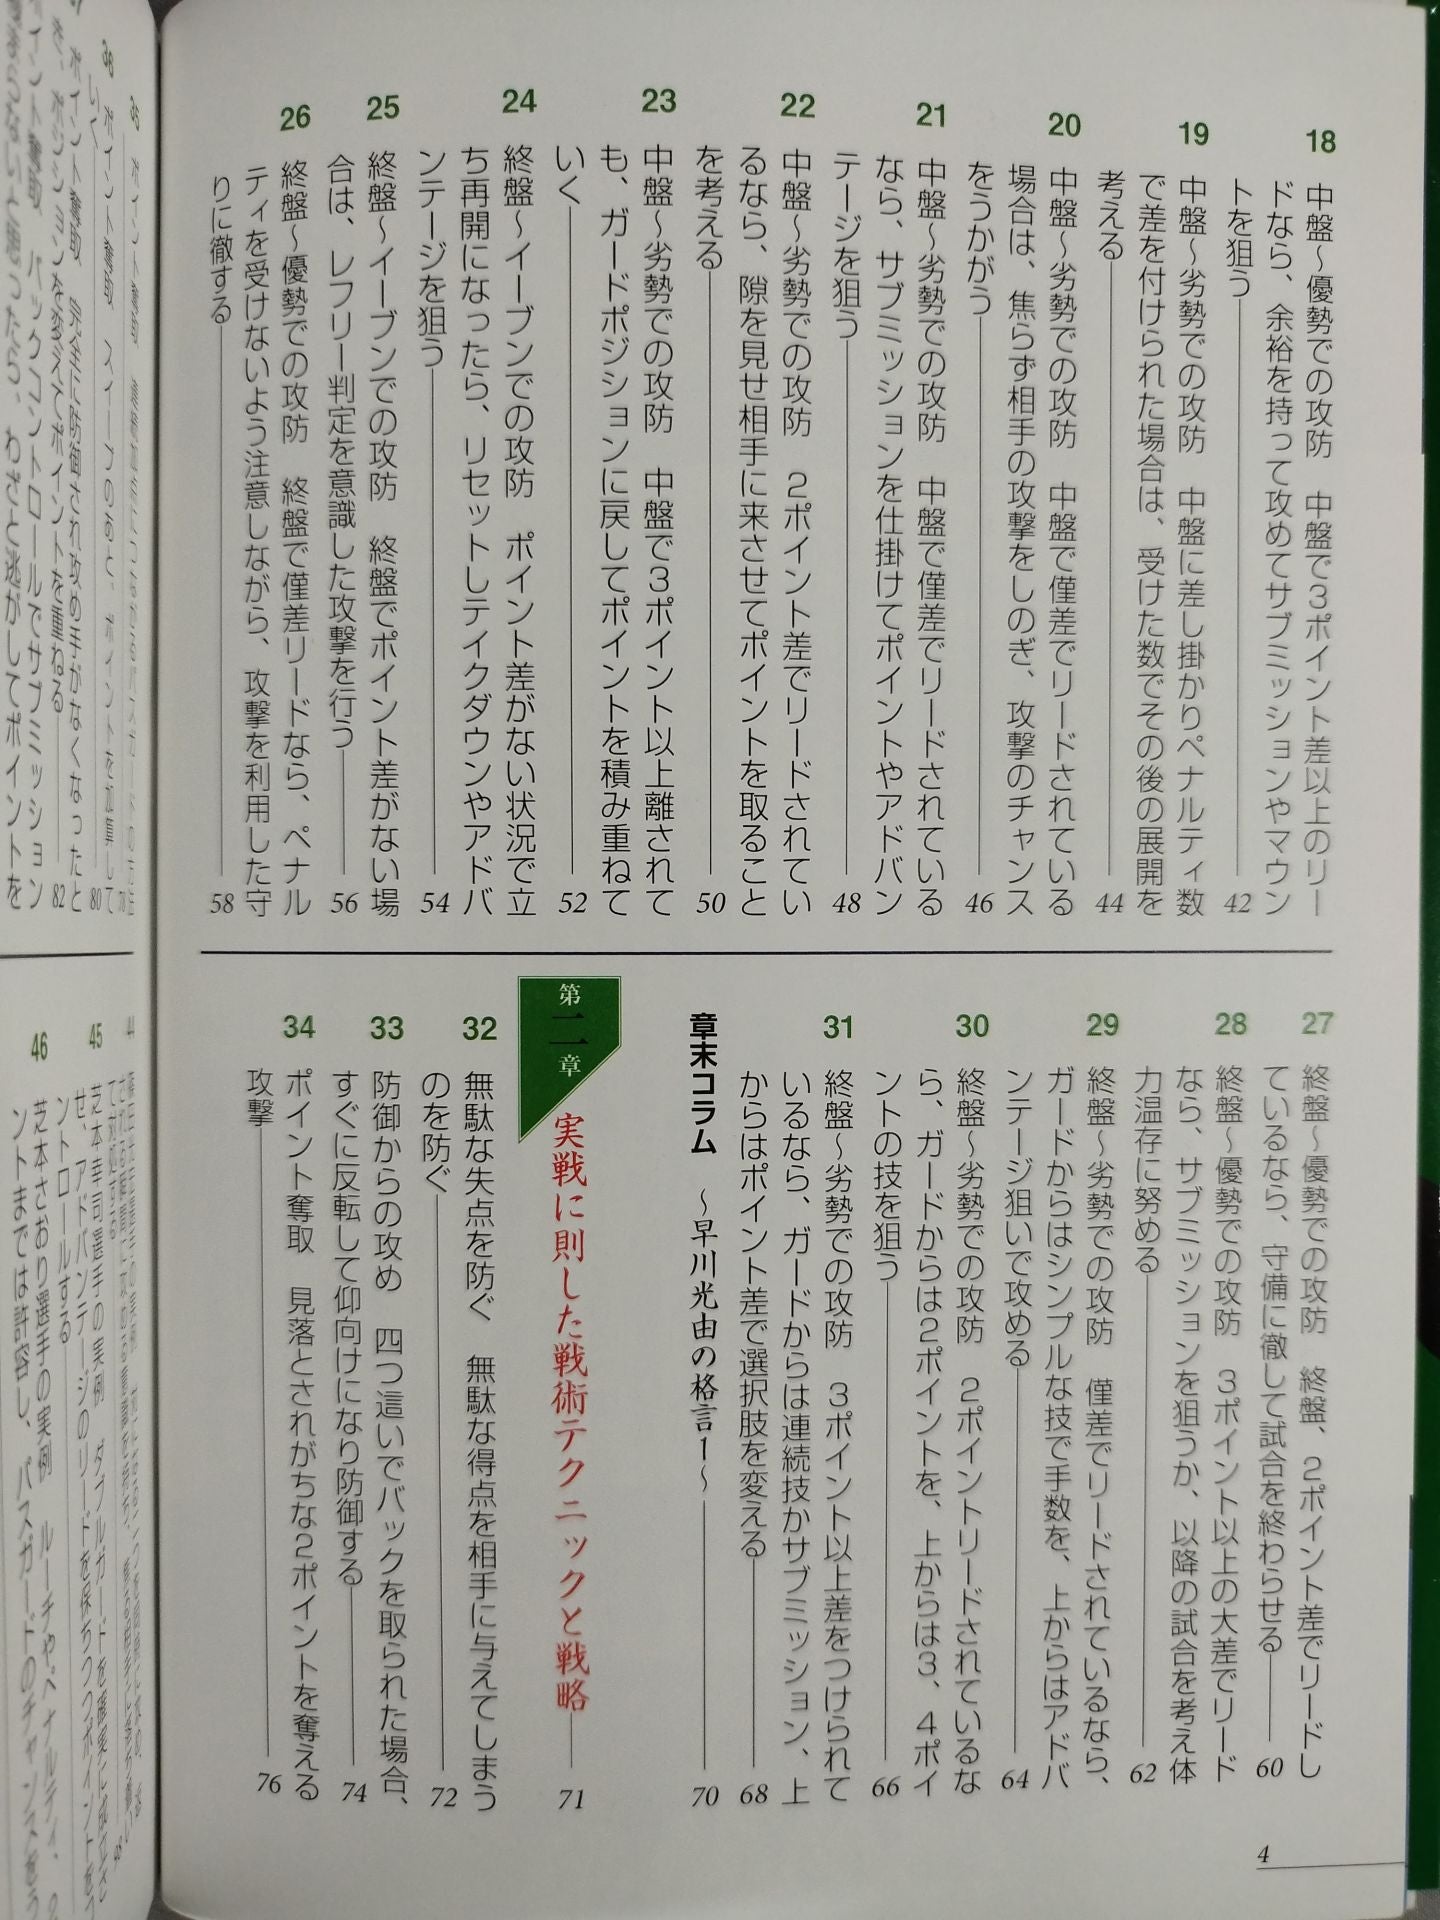 18
中盤〜優勢での攻防　中盤で3ポイント差以上のリー
ドなら、余裕を持って攻めてサブミッションやマウン
トを狙う
42
19
中盤〜劣勢での攻防　中盤に差し掛かりペナルティ数
で差を付けられた場合は、受けた数でその後の展開を
考える
44
20
中盤〜劣勢での攻防　中盤で僅差でリードされている
場合は、焦らず相手の攻撃をしのぎ、攻撃のチャンス
をうかがう
46
21
中盤〜劣勢での攻防　中盤で僅差でリードされている
なら、サブミッションを仕掛けてポイントやアドバン
テージを狙う
48
22
中盤〜劣勢での攻防　2ポイント差でリードされてい
るなら、隙を見せ相手に来させてポイントを取ること
を考える
50
23
中盤〜劣勢での攻防　中盤で3ポイント以上離されて
も、ガードポジションに戻してポイントを積み重ねて
いく
52
24
終盤〜イーブンでの攻防　ポイント差がない状況で立
ち再開になったら、リセットしテイクダウンやアドバ
ンテージを狙う
54
25
終盤〜イーブンでの攻防　終盤でポイント差がない場
合は、レフリー判定を意識した攻撃を行う
56
26
終盤〜優勢での攻防　終盤で僅差リードなら、ペナル
ティを受けないよう注意しながら、攻撃を利用した守
りに徹する
58
27
終盤〜優勢での攻防　終盤、2ポイント差でリードし
ているなら、守備に徹して試合を終わらせる
60
28
終盤〜優勢での攻防　3ポイント以上の大差でリード
なら、サブミッションを狙うか、以降の試合を考え体
力温存に努める
62
29
終盤〜劣勢での攻防　僅差でリードされているなら、
ガードからはシンプルな技で手数を、上からはアドバ
ンテージ狙いで攻める
64
30
終盤〜劣勢での攻防　2ポイントリードされているな
ら、ガードからは2ポイントを、上からは3、4ポイ
ントの技を狙う
66
31
終盤〜劣勢での攻防　3ポイント以上差をつけられて
いるなら、ガードからは連続技かサブミッション、上
からはポイント差で選択肢を変える
68
章末コラム　〜早川光由の格言1〜
70
第二章
実戦に則した戦術テクニックと戦略
71
32
無駄な失点を防ぐ　無駄な得点を相手に与えてしまう
のを防ぐ
72
33
防御からの攻め　四つ這いでバックを取られた場合、
すぐに反転して仰向けになり防御する
74
34
ポイント奪取　見落とされがちな2ポイントを奪える
攻撃
76
4
35
ポイント奪取
78
36
ポイント奪取　スイープのあと、ポイントを加算して
いく
80
ポイント奪取　完全に防御され攻め手がなくなったと
き、ポジションを変えてポイントを重ねる
82
ポイント奪取　バックコントロールでサブミッション
思ったら、わざと逃がしてポイントを
44
45
芝本幸司選手の実例　ダブルガードを確実に成立さ
せ、アドバンテージのリードを保ちつつポイントをコ
ントロールする
98
46
芝本さおり選手の実例　ルーチやペナルティ、2
ントまでは許容し、パスガードのチャンスを